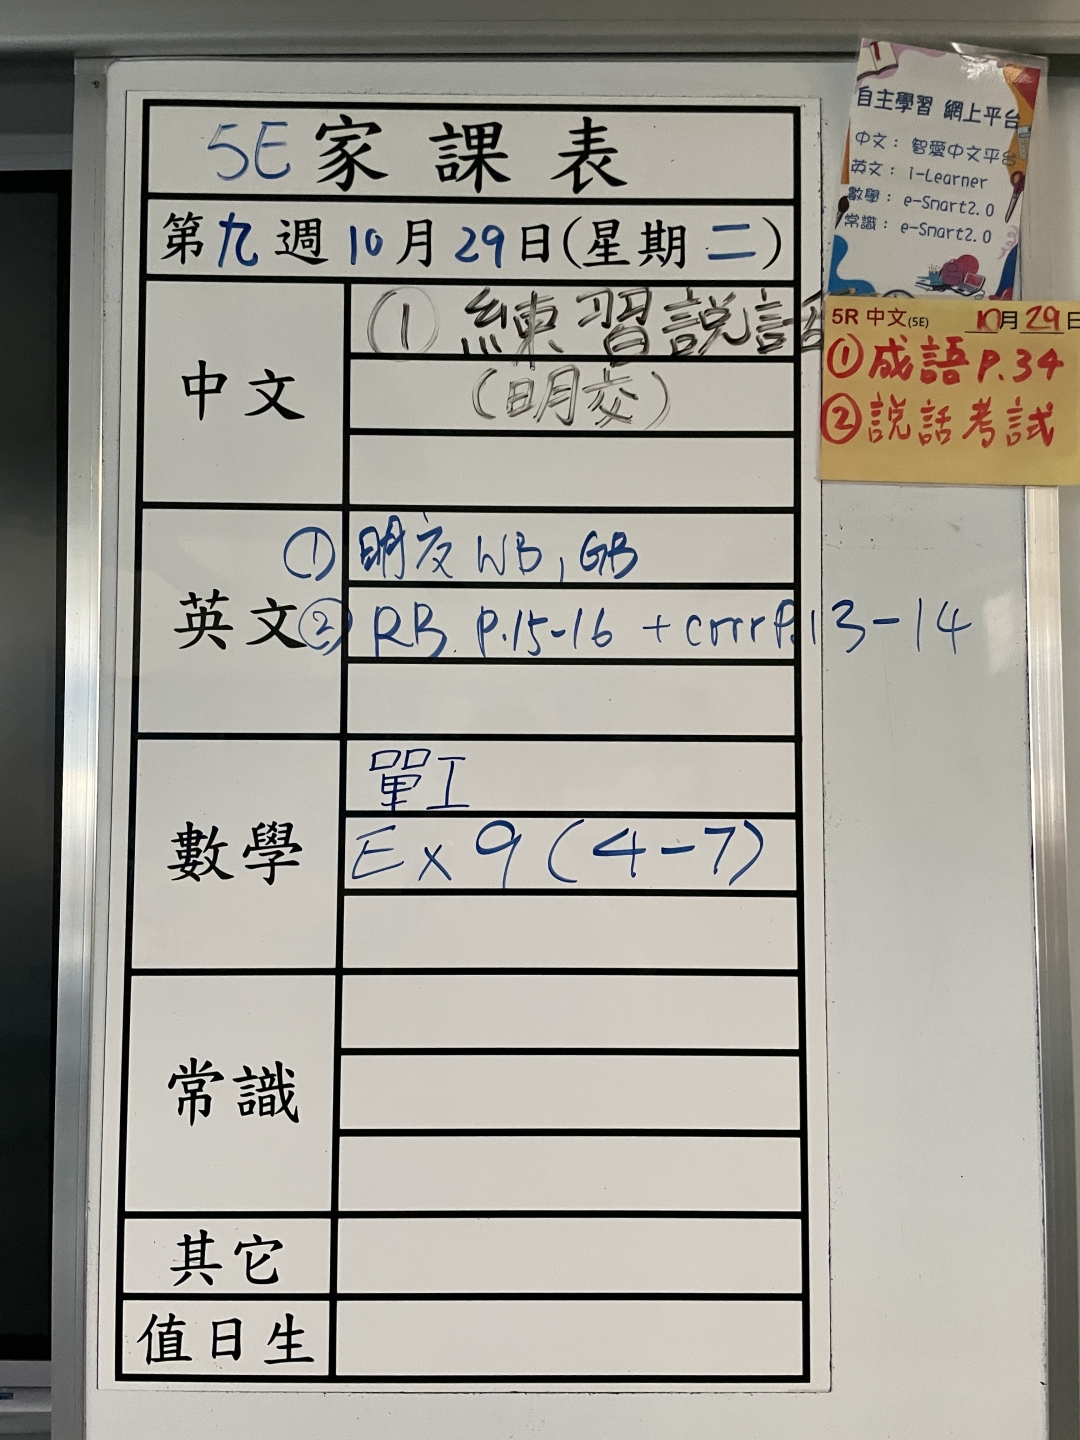 5E家課表
第九週10月29日(星期二)
中文
① 練習說話
(明交)
英文
① 明交 WB, GB
② RB P.15-16 + corr P.13-14
數學
單工
Ex 9 (4-7)
常識
其它
值日生
自主學習 網上平台
中文： 智愛中文平台
英文： i-Learner
數學： e-Smart2.0
常識： e-Smart2.0
5R 中文(5E) 10月29日
① 成語 P.34
② 說話考試